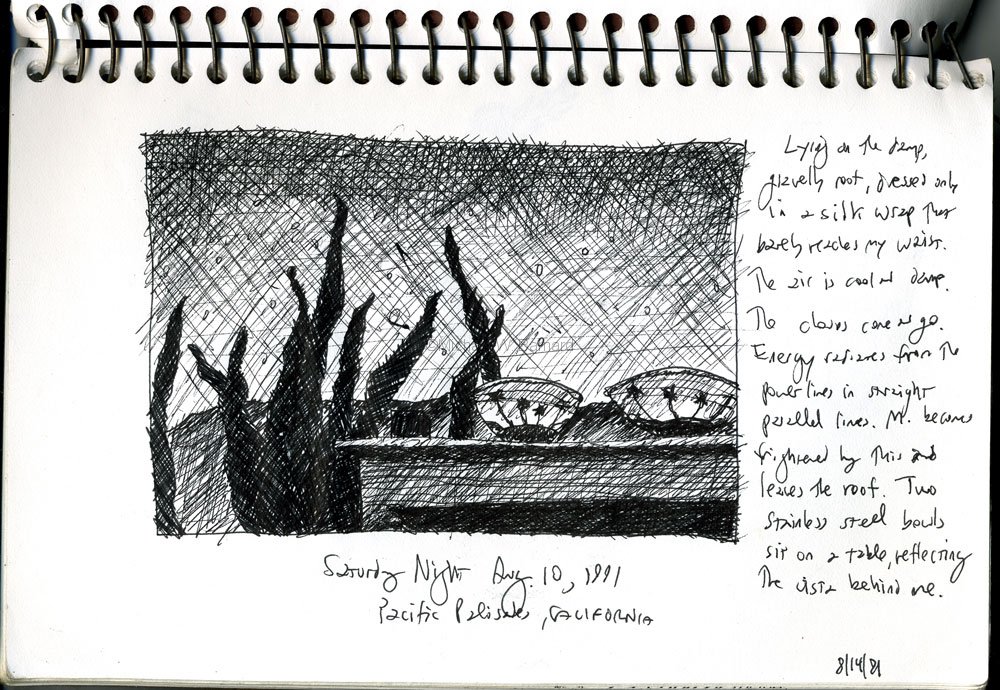 Lying on the damp,
gravelly roof, dressed only
in a silk wrap that
barely reaches my waist.
The air is cool and damp.
The clouds come and go.
Energy radiates from the
power lines in straight
parallel lines. M. becomes
frightened by this and
leaves the roof. Two
stainless steel bowls
sit on a table, reflecting
the vista behind me.
Saturday Night Aug. 10, 1991
Pacific Palisades, CALIFORNIA
8/14/91